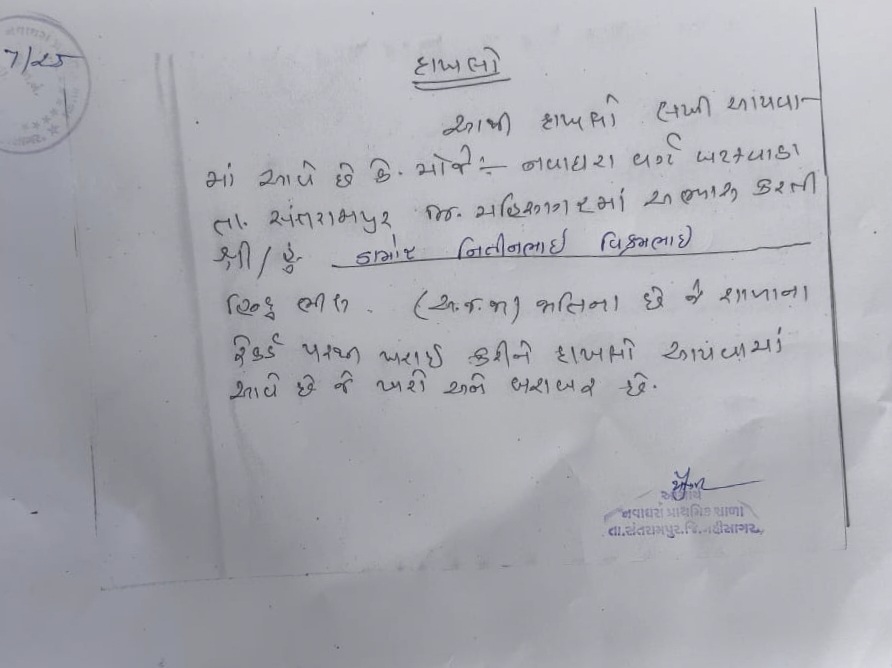 7/25
દાખલો
આથી દાખલો લખી આપવા-
માં આવે છે કે. મોજે:- નવાઘરા વર્ગ બરજવાડા
તા. સંતરામપુર જી. મહિસાગરમાં અભ્યાસ કરતી
શ્રી/કું ડામોર નિતીનભાઈ વિક્રમભાઈ
હિન્દુ ભીલ. (અ.જ.જા) જાતિના છે જે શાળાના
રેકર્ડ પરથી ખરાઈ કરીને દાખલો આપવામાં
આવે છે જે ખરો અને બરાબર છે.
આચાર્ય
નવાઘરા પ્રાથમિક શાળા
તા.સંતરામપુર.જિ.મહીસાગર,